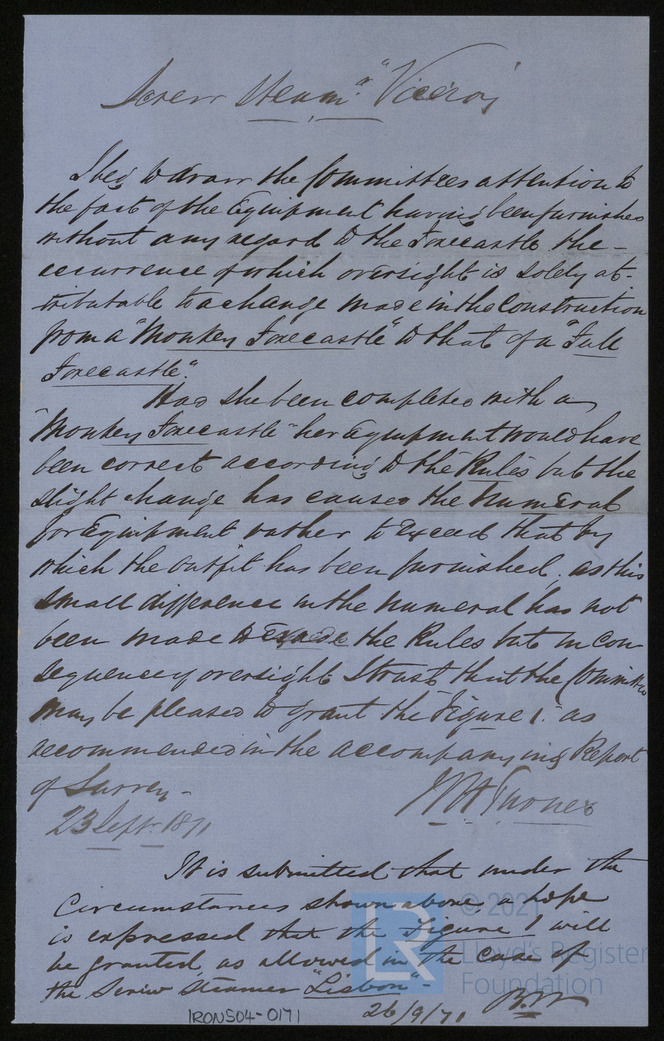 Screw Steamr "Viceroy"
I beg to draw the Committees attention to
the fact of the Equipment having been furnished
without any regard to the Forecastle the
occurrence of which oversight is solely at-
tributable to a change made in the Construction
from a "Monkey Forecastle" to that of a "Full
Forecastle".
Had she been completed with a
"Monkey Forecastle" her Equipment would have
been correct according to the Rules but the
slight change has caused the Numeral
for Equipment rather to exceed that by
which the outfit has been furnished, as this
small difference in the numeral has not
been made to Evade the Rules but in con-
sequence of oversight I trust that the Committee
may be pleased to grant the Figure 1. as
recommended in the accompanying Report
of Survey -
23 Sept. 1871
It is submitted that under the
Circumstances shown above a hope
is expressed that the Figure 1 will
be granted, as allowed in the case of
the Screw Steamer "Lisbon" -
26/9/71
IRON504-0171
LR
© 2021
Lloyd's Register
Foundation